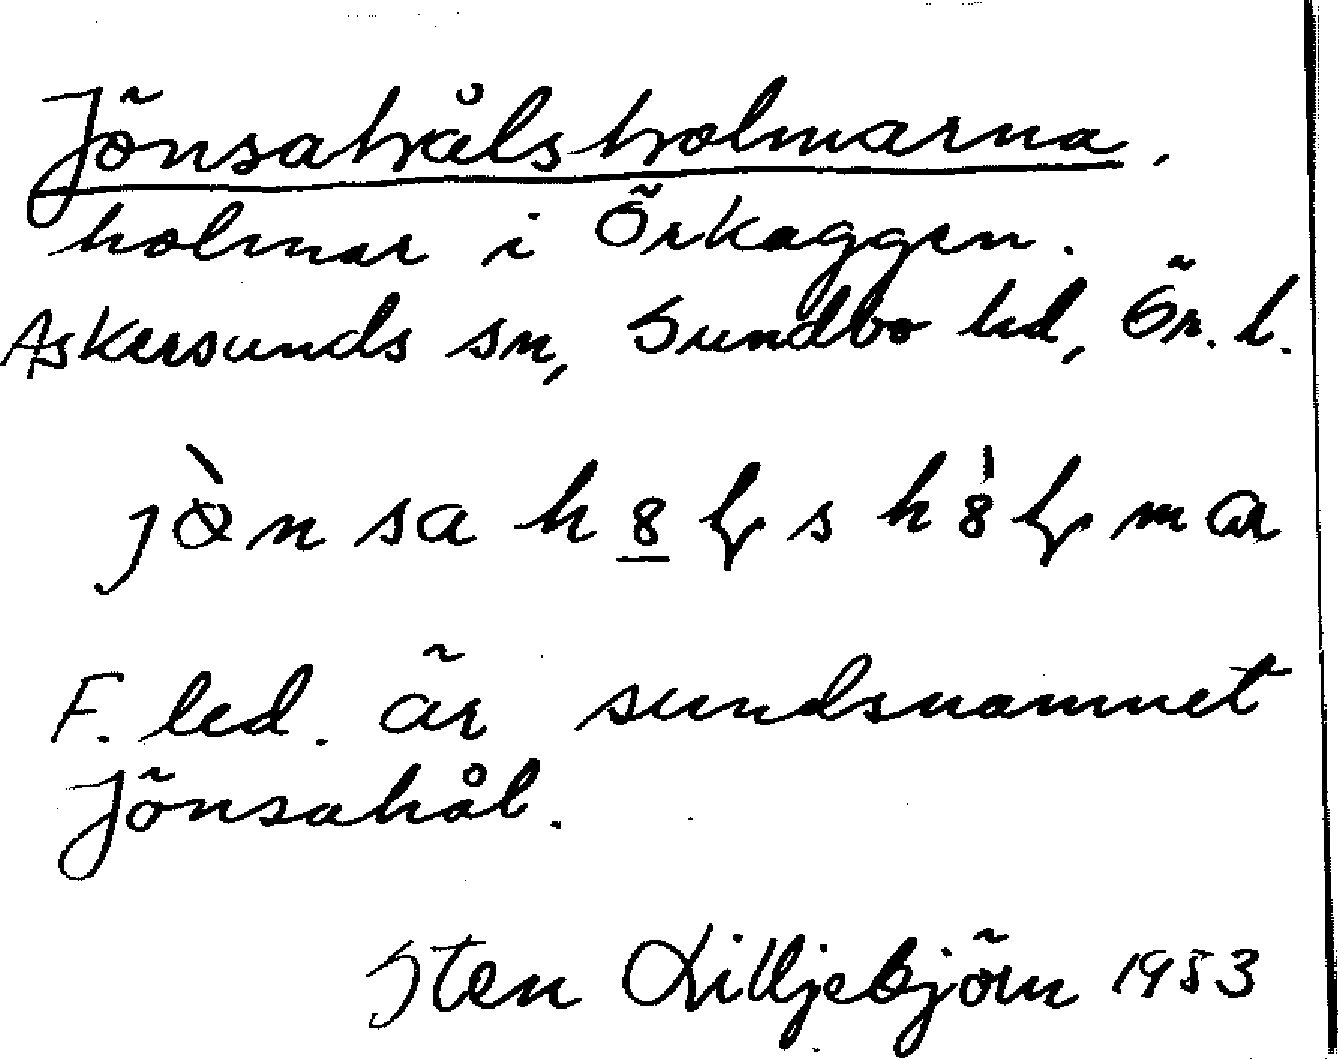 Jönsahålsholmarna,
holmar i Örkaggen.
Askersunds sn, Sundbo hd, Ör. l.
F. led. är sundsnamnet
Jönsahål.
Sten Lilljebjörn 1953